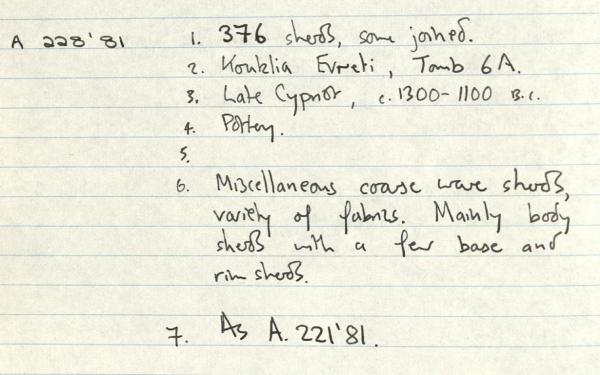 A 228'81 1. 376 sherds, some joined.
2. Kouklia Evreti, Tomb 6A.
3. Late Cypriot, c. 1300-1100 B.C.
4. Pottery.
5.
6. Miscellaneous coarse ware sherds,
variety of fabrics. Mainly body
sherds with a few base and
rim sherds.
7. As A. 221'81.